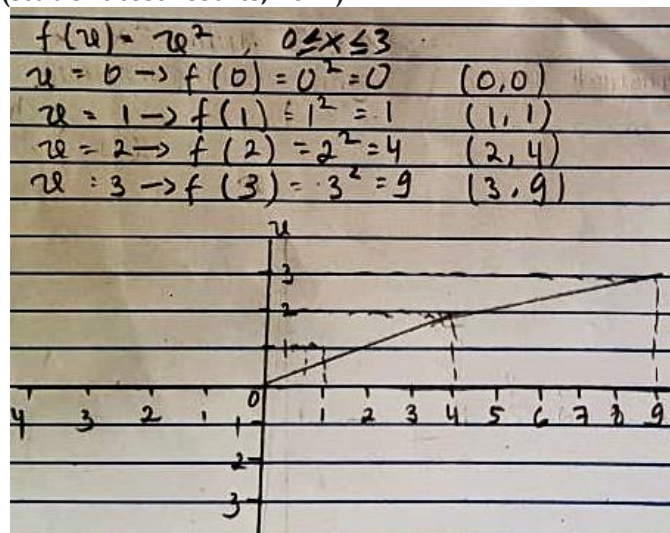 f(x) = x², 0≤x≤3
x = 0 → f(0) = 0² = 0 (0,0)
x = 1 → f(1) = 1² = 1 (1,1)
x = 2 → f(2) = 2² = 4 (2,4)
x = 3 → f(3) = 3² = 9 (3,9)
x
3
2
1
4 3 2 1 0 1 2 3 4 5 6 7 8 9
1
2
3